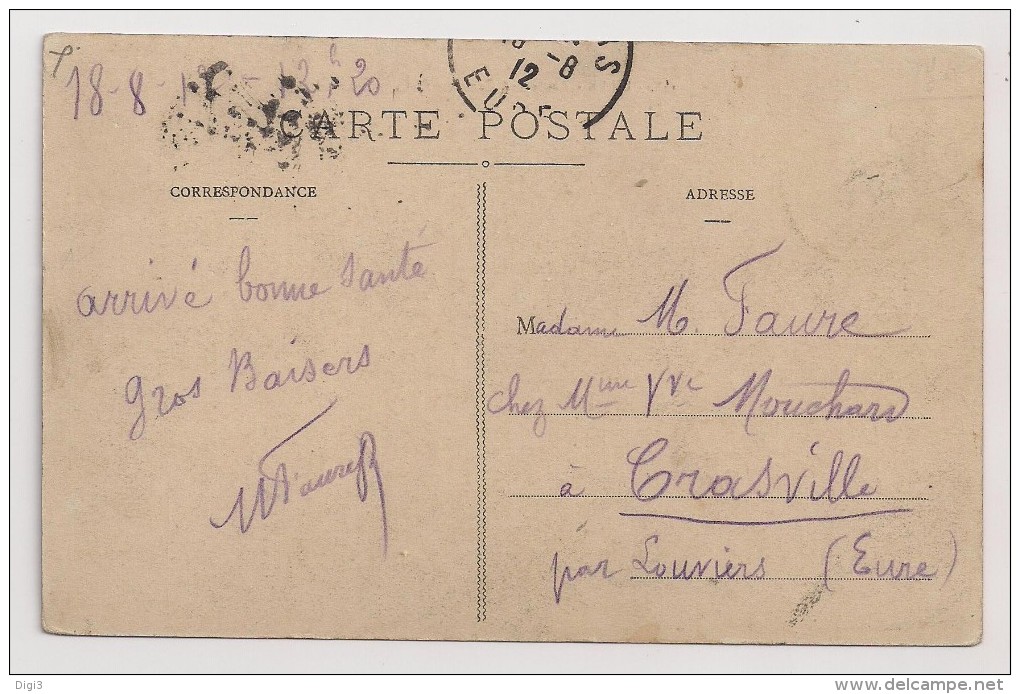 18-8-1 - 12h20
12 -8
EURE
CARTE POSTALE
CORRESPONDANCE
ADRESSE
arrivé bonne santé
Gros Baisers
M Faure
Madame M. Faure
chez Mme Vve Mouchard
à Crasville
par Louviers (Eure)
Digi3
www.delcampe.net